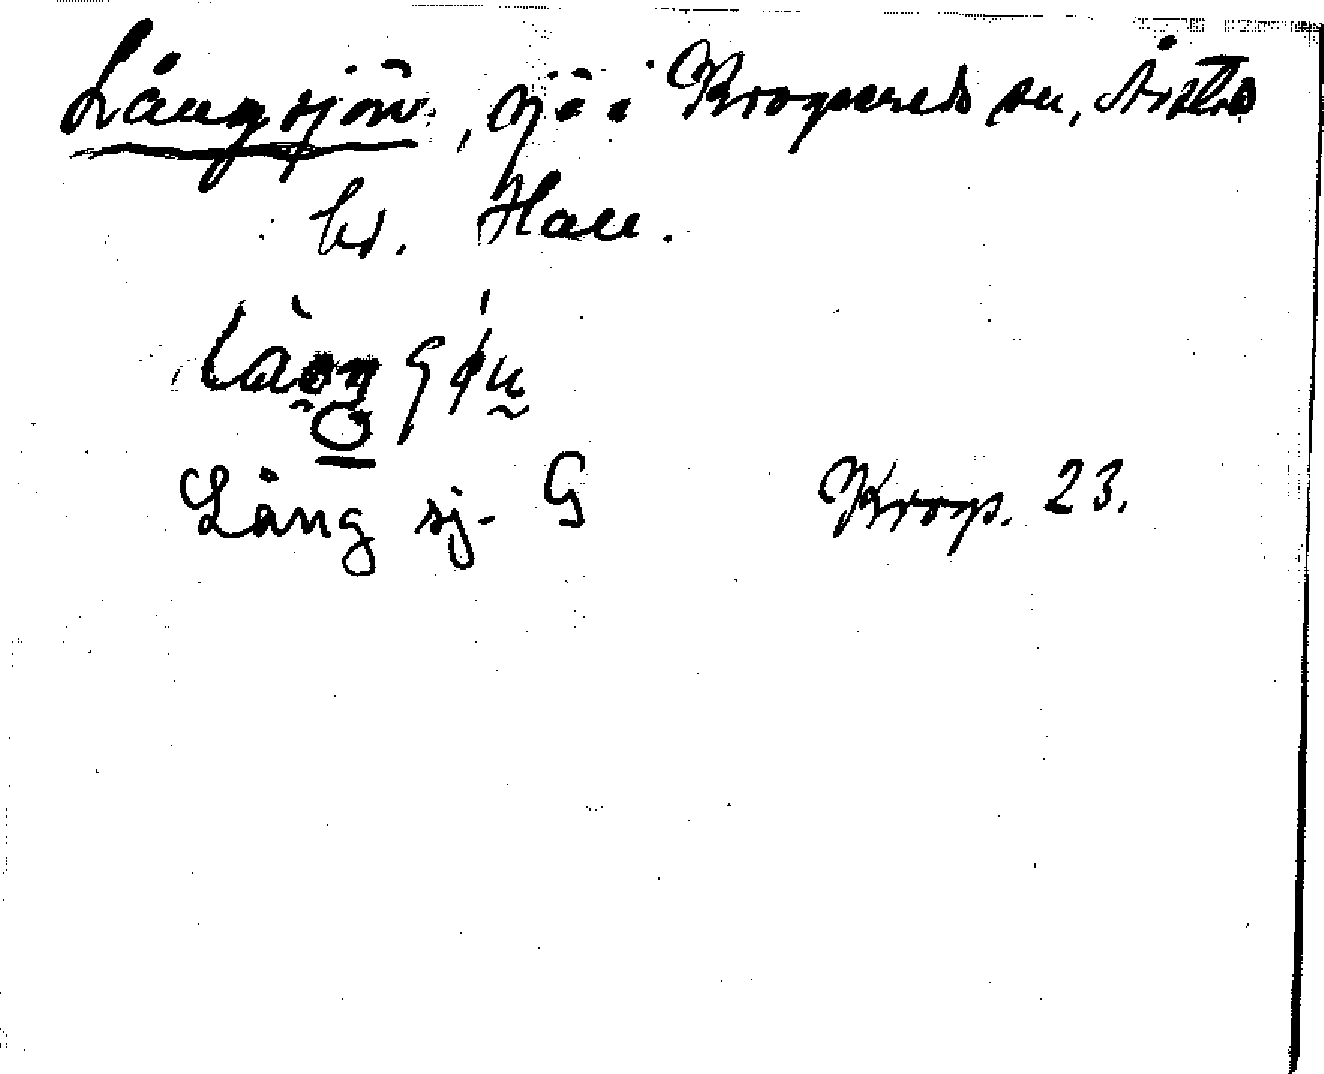 Långsjön, sjö i Kroppereds sn, Årstads
hd. Hall.
Lång sj- G Krop. 23.